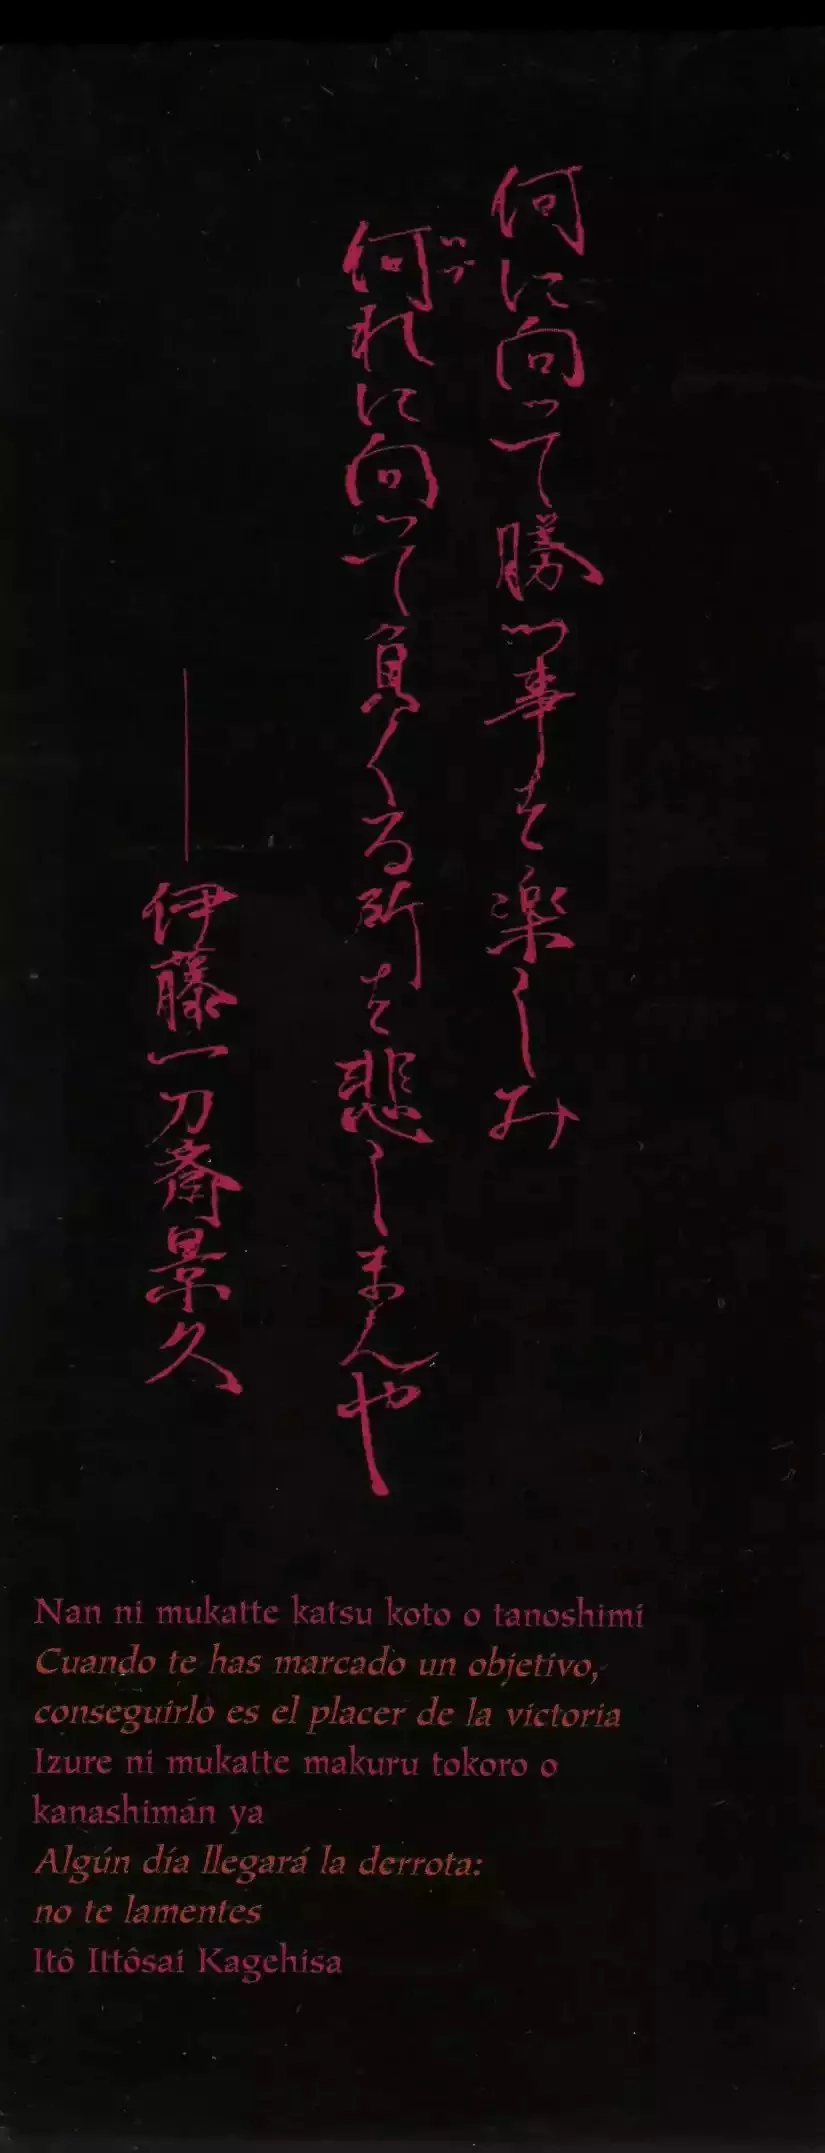 何に向って勝つ事を楽しみ
何れに向って負くる所を悲しまんや
いづ
──伊藤一刀斎景久
Nan ni mukatte katsu koto o tanoshimi
Cuando te has marcado un objetivo,
conseguirlo es el placer de la victoria
Izure ni mukatte makuru tokoro o
kanashiman ya
Algún día llegará la derrota:
no te lamentes
Itô Ittôsai Kagehisa